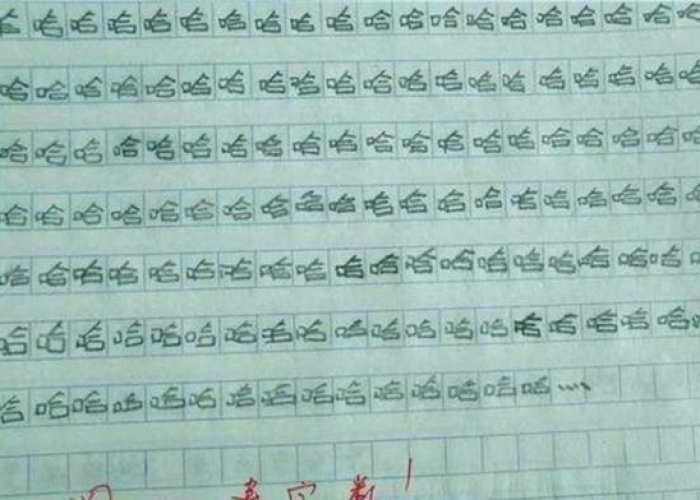 哈哈哈哈哈哈哈哈哈哈哈哈哈哈哈哈哈哈哈哈
哈哈哈哈哈哈哈哈哈哈哈哈哈哈哈哈哈哈哈哈
哈哈哈哈哈哈哈哈哈哈哈哈哈哈哈哈哈哈哈哈
哈哈哈哈哈哈哈哈哈哈哈哈哈哈哈哈哈哈哈哈
哈哈哈哈哈哈哈哈哈哈哈哈哈哈哈哈哈哈哈哈
哈哈哈哈哈哈哈哈哈哈哈哈哈哈哈哈哈哈哈哈
哈哈哈哈哈哈哈哈哈哈哈哈哈哈哈....
字数!